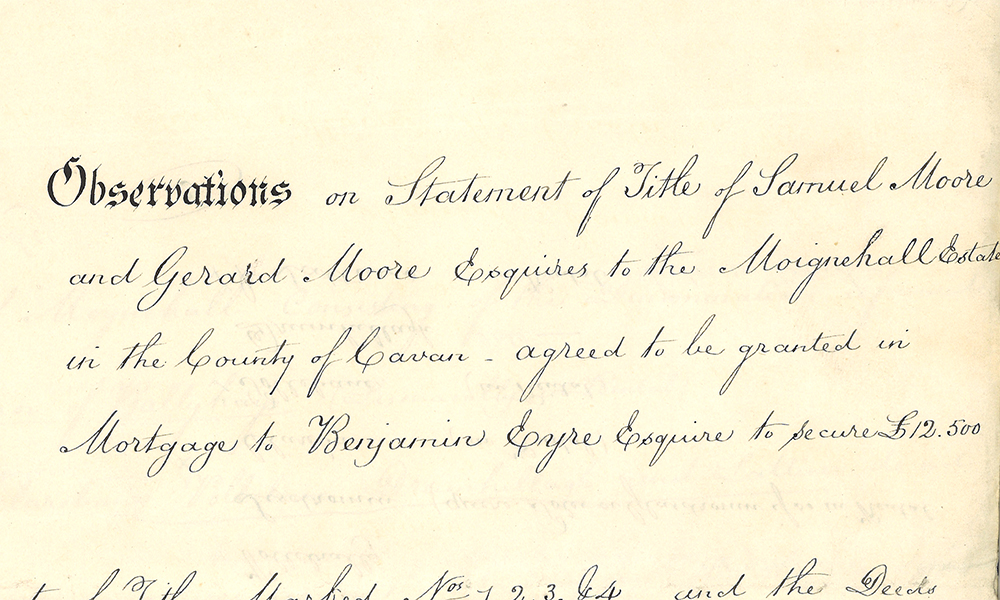 Observations on Statement of Title of Samuel Moore
and Gerard Moore Esquires to the Moignehall Estate
in the County of Cavan - agreed to be granted in
Mortgage to Benjamin Eyre Esquire to secure £12.500
of Title Marked Nos 1 2. 3. & 4 and the Deeds